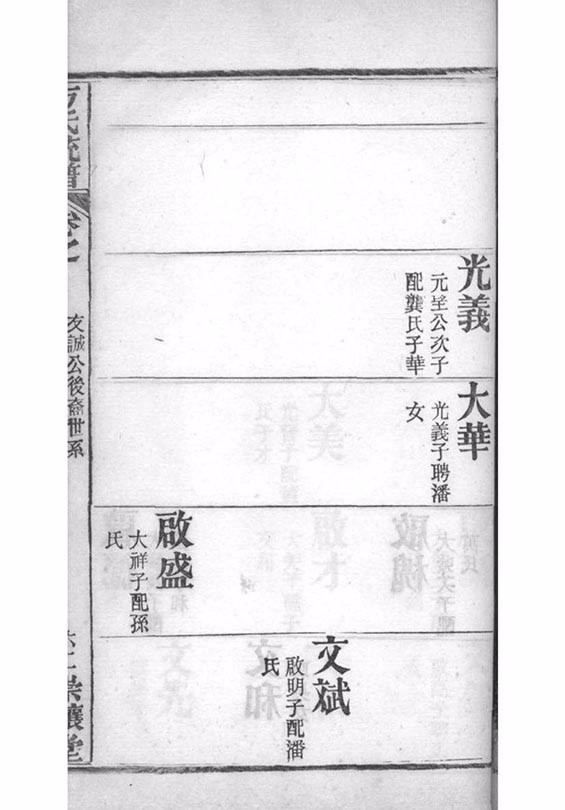 光義
元𡈼公次子
配龔氏子華
大華
光義子聘潘
女
啟盛
大祥子配孫
氏
文斌
啟明子配潘
氏
方氏統譜
卷之
友誠公後裔世系